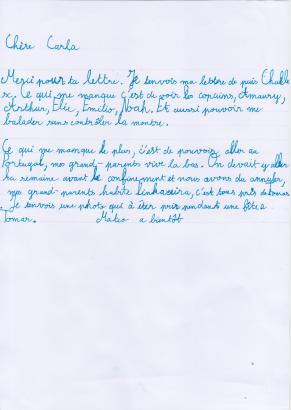 Chère Carla
Merci pour ta lettre. Je t'envois ma lettre de puis Chable
x. Ce qui me manque c'est de voir les copains, Amaury,
Arthur, Elie, Emilio, Noah. Et aussi pouvoir me
balader sans contrôler la montre.
Ce qui me manque le plus, c'est de pouvoir aller au
Portugal, mes grand-parents vive la bas. On devait y aller
la semaine avant le confinement et nous avons du annuler,
mes grand-parents habite linhaceira, c'est tous près de tomar
Je t'envois une photo qui à éter pris pendants une fête a
tomar. Mateo a bientôt